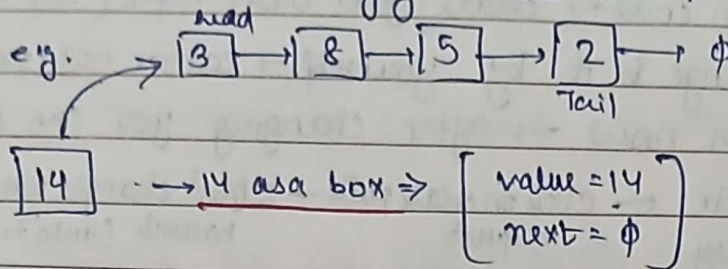 head
e.g. 3 → 8 → 5 → 2 → φ
Tail
14 → 14 as a box ⇒ [ value = 14
next = φ ]